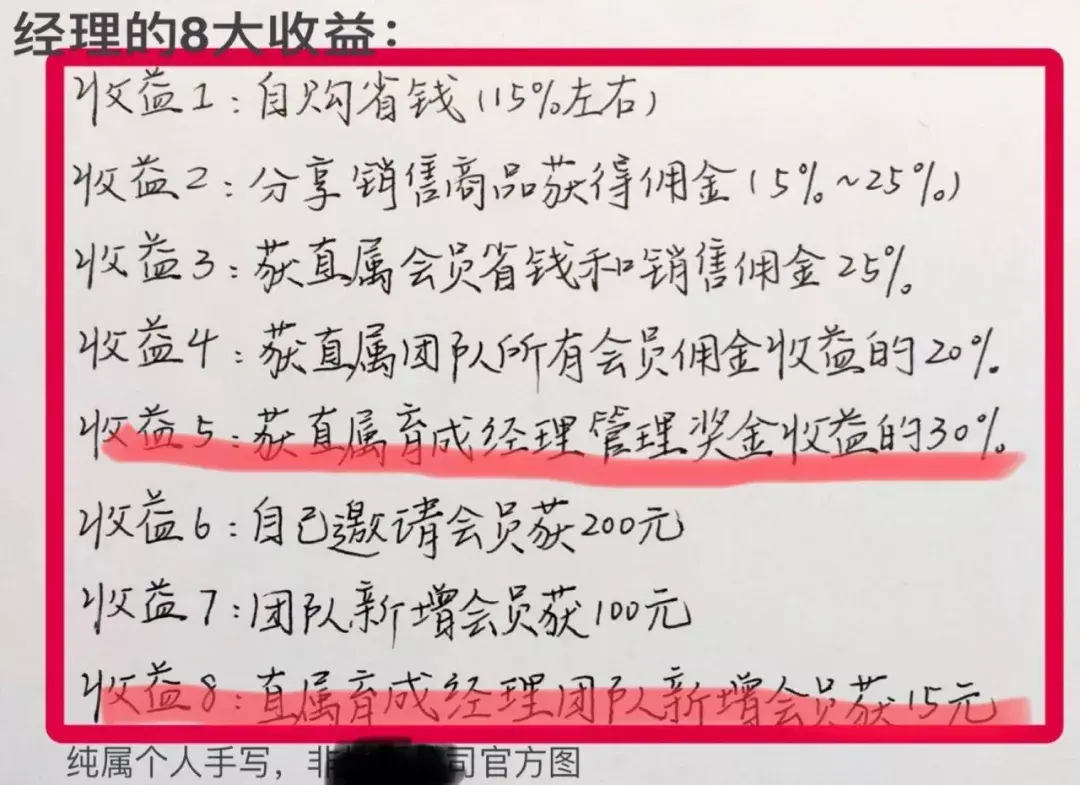 经理的8大收益：
收益1：自购省钱（15%左右）
收益2：分享销售商品获得佣金（5%~25%）
收益3：获直属会员省钱和销售佣金25%。
收益4：获直属团队所有会员佣金收益的20%.
收益5：获直属育成经理管理奖金收益的30%.
收益6：自己邀请会员获200元
收益7：团队新增会员获100元
收益8：直属育成经理团队新增会员获15元
纯属个人手写，非 司官方图